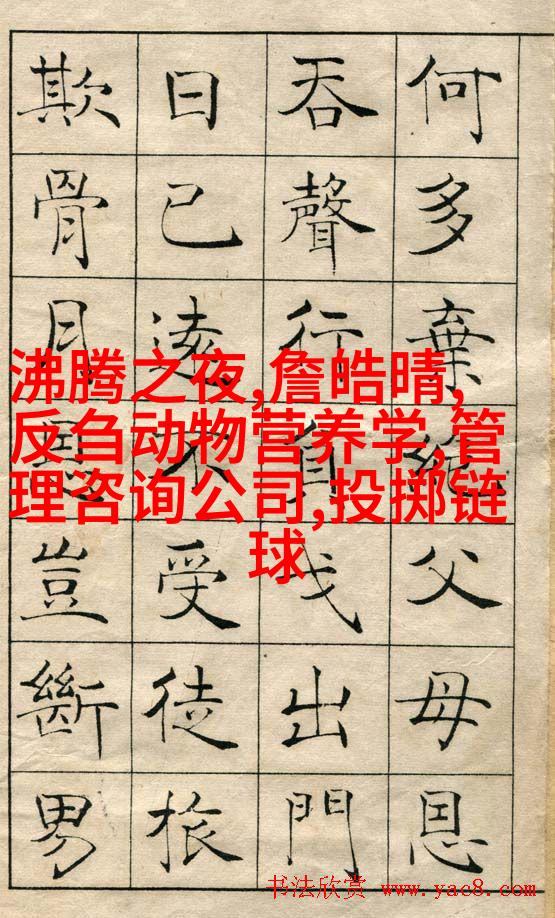 何多棄絕父母恩
吞聲行負戈出門
日已遠不受徒旅
欺骨豈斷男
沸腾之夜,詹皓晴,
反刍动物营养学,管
理咨询公司,投掷链
球
书法欣赏 www.yac8.com